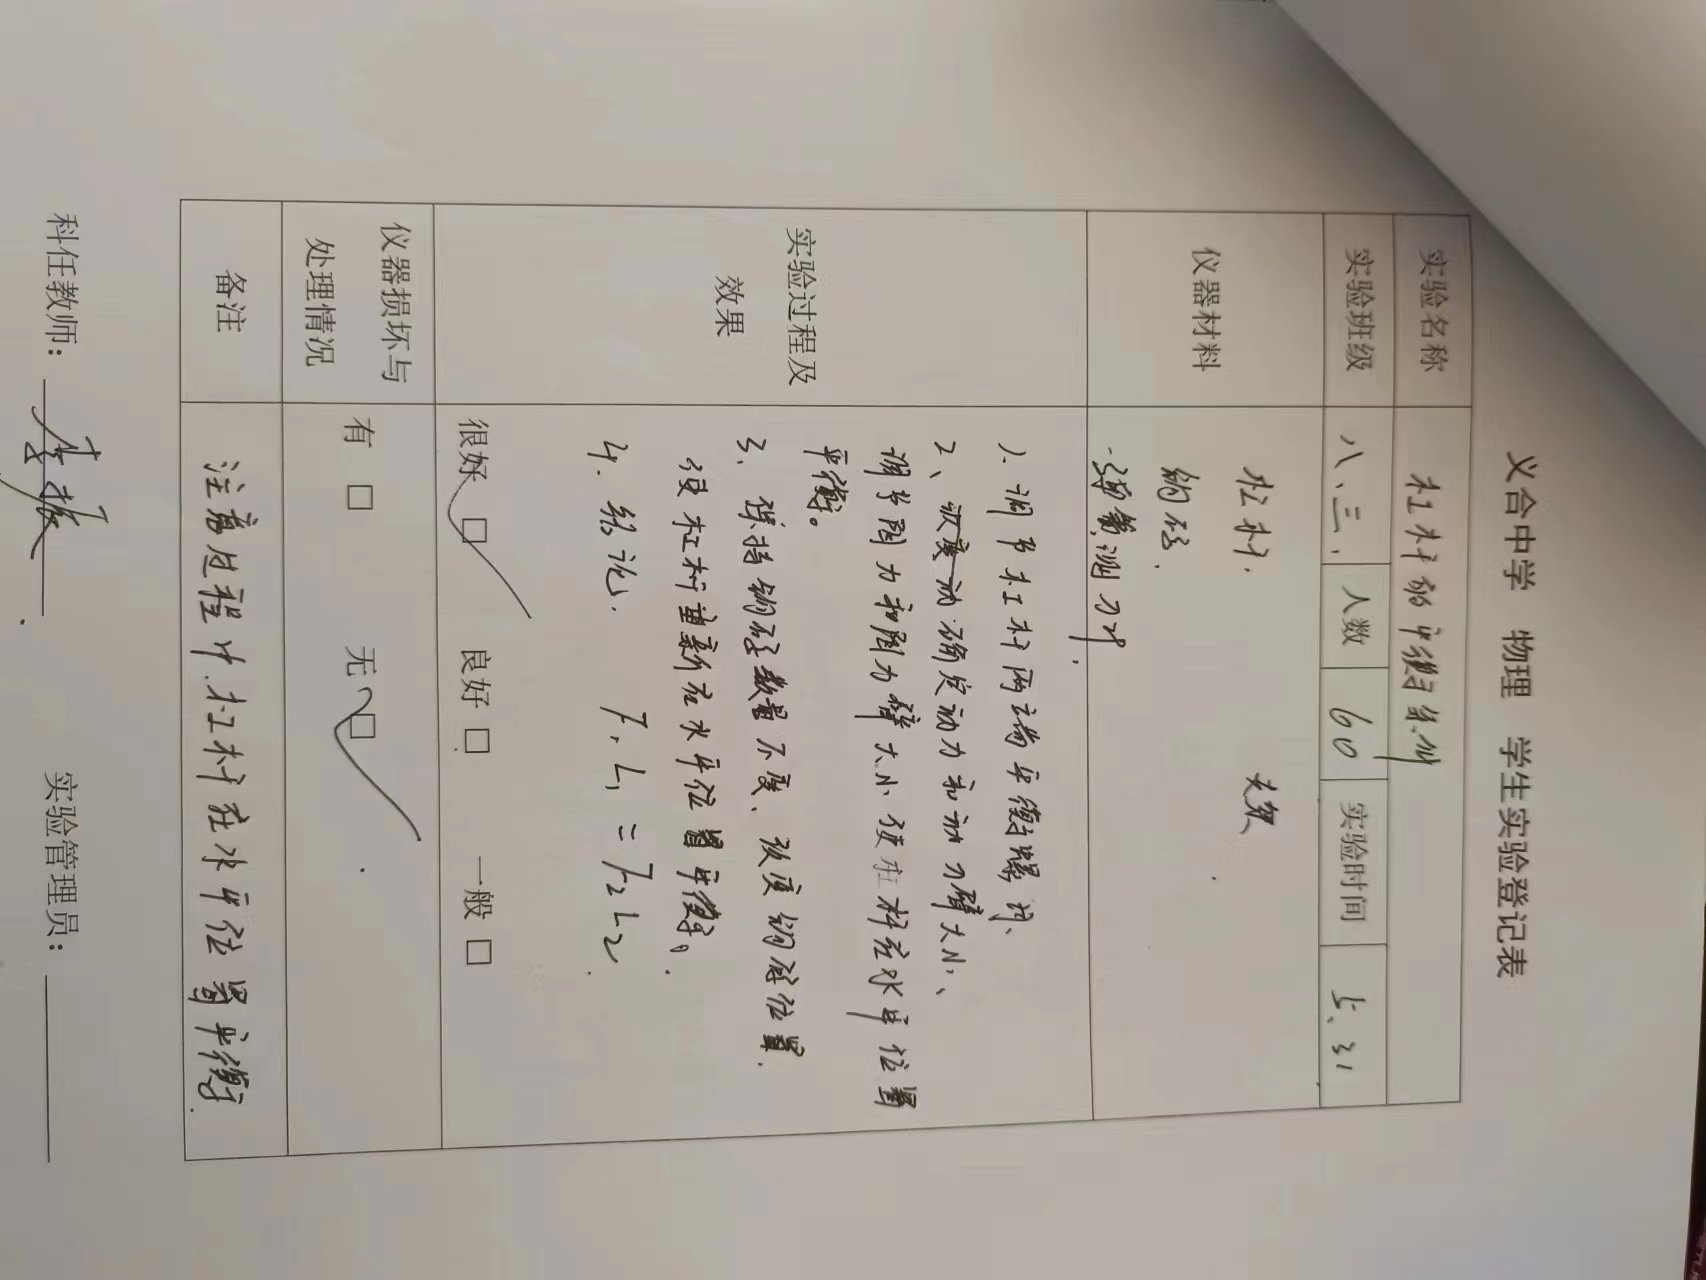 义合中学 物理 学生实验登记表
实验名称 杠杆的平衡条件
实验班级 八、三、 人数 60 实验时间 5、31
仪器材料 杠杆. 支架
钩码、
弹簧测力计.
实验过程及效果
1、调节杠杆两端平衡螺母、
2、确定动力和动力臂大小、
调节阻力和阻力臂大小使杠杆在水平位置
平衡。
3、保持钩码数量不变、改变钩码位置.
使杠杆重新在水平位置平衡。
4、结论、 F1L1=F2L2.
很好 □ 良好 □ 一般 □
仪器损坏与处理情况 有 □ 无 □
备注 注意过程中.杠杆在水平位置平衡.
科任教师： 实验管理员：